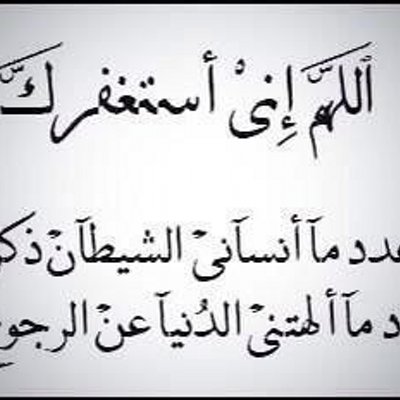 اللهمّ إنى أستغفرك
عدد مآ أنسآنى الشيطآن ذكر
د مآ ألهتنى الدُنيآ عن الرجوع